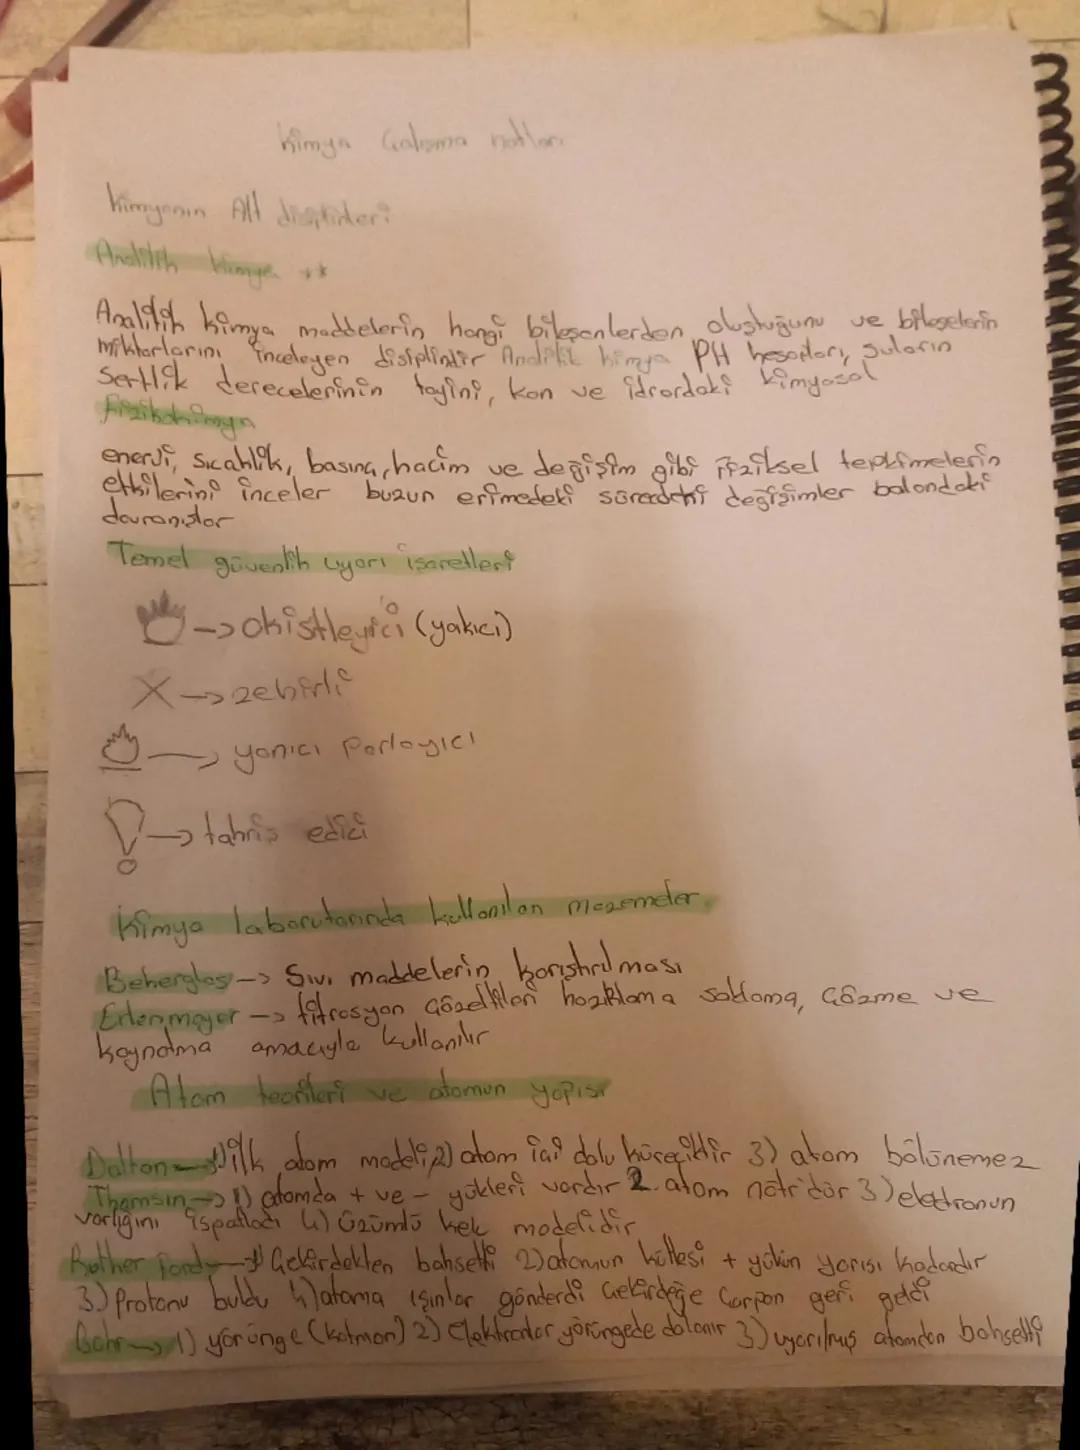 Kimya Çalışma notları
Kimyanın Alt disiplinleri
Analitik Kimya **
Analitik kimya maddelerin hangi bileşenlerden oluştuğunu ve bileşelerin
miktarlarını inceleyen disiplindir Analitik kimya PH hesapları, suların
sertlik derecelerinin tayini, kan ve idrardaki kimyasal
Fizikokimya
enerji, sıcaklık, basınç, hacim ve değişim gibi fiziksel tepkimelerin
etkilerini inceler buzun erimedeki sürecdeki değişimler balondaki
davranışlar
Temel güvenlik uyarı işaretleri
→ okistleyici (yakıcı)
X → zehirli
→ yanıcı parlayıcı
! → tahriş edici
Kimya laborutarında kullanılan mazemeler
Beherglas → Sıvı maddelerin karıştırılması
Erlenmayer → titrasyon çözeltileri hazıklama saklama, çözme ve
kaynatma amacıyla kullanılır
Atom teorileri ve atomun yapısı
Dalton → 1) ilk atom modeli, 2) atom içi dolu küreciktir 3) atom bölünemez
Thomsın → 1) atomda + ve - yükleri vardır 2. atom nötrdür 3) elektronun
varlığını ispatladı 4) Üzümlü kek modelidir
Ruther Ford → 1) Çekirdekten bahsetti 2) atomun kütlesi + yükün yarısı kadardır
3) Protonu buldu 4) atoma ışınlar gönderdi Çekirdeğe Çarpan geri geldi
Bohr → 1) yörünge (katman) 2) Elektronlar yörüngede dolanır 3) uyarılmış atomdan bahsetti